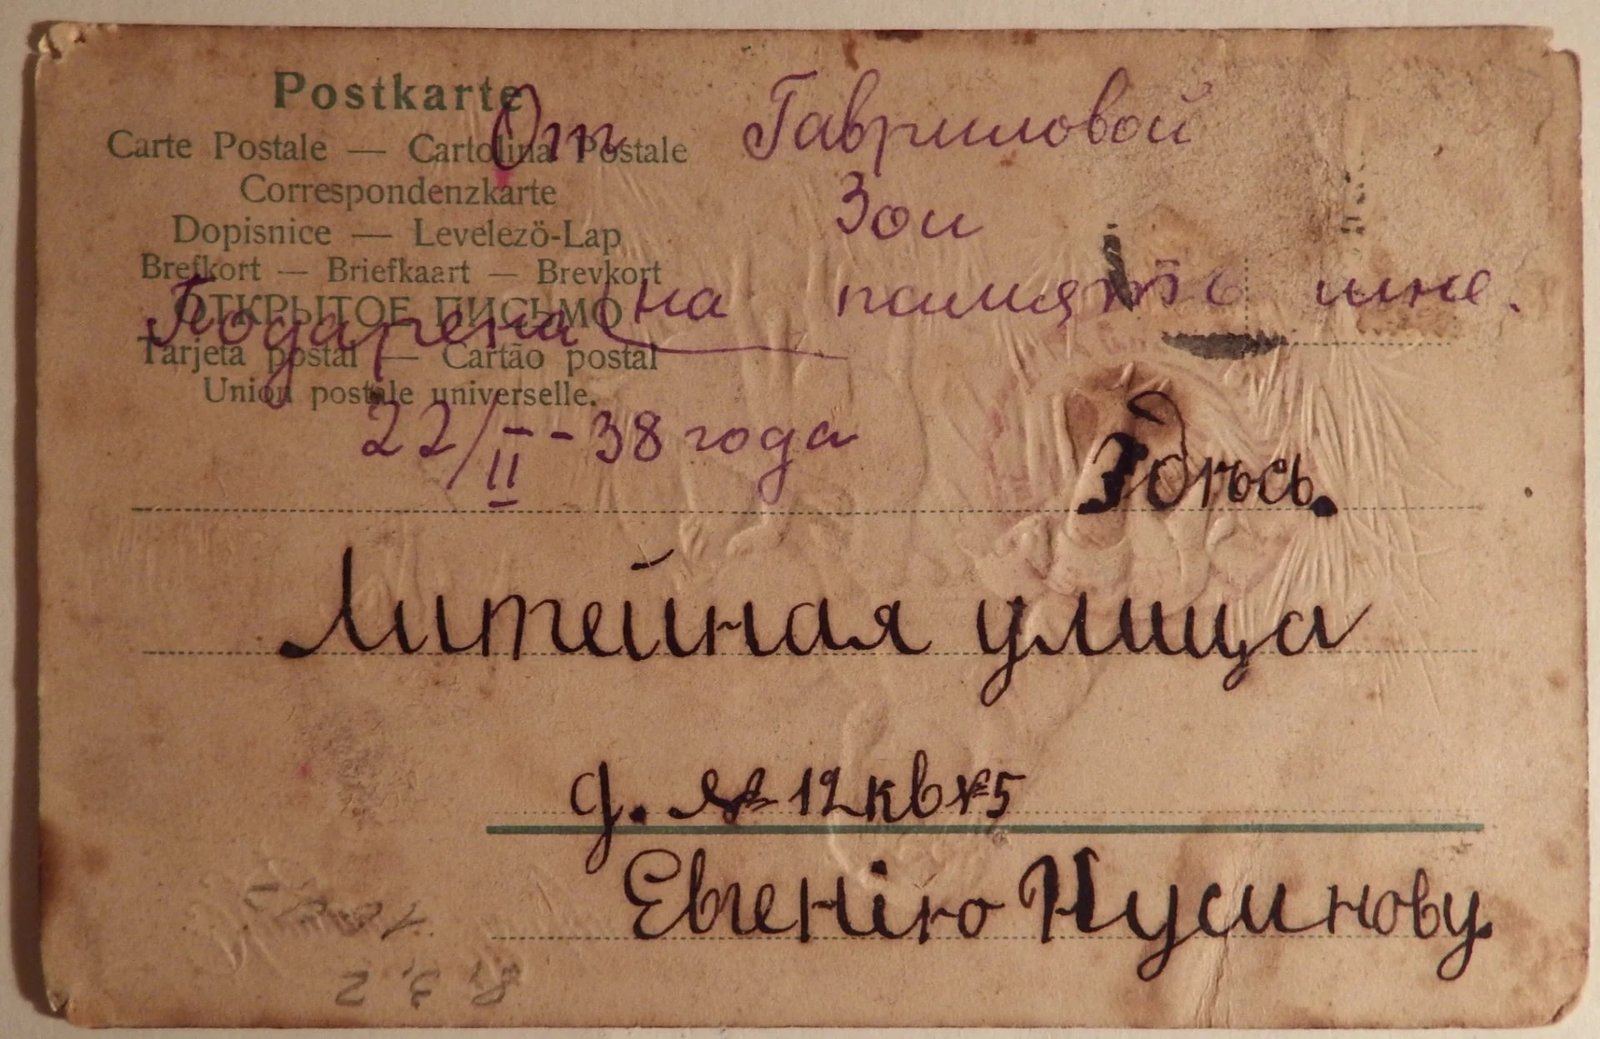 Postkarte
Carte Postale — Cartolina Postale
Correspondenzkarte
Dopisnice — Levelezö-Lap
Brefkort — Briefkaart — Brevkort
ОТКРЫТОЕ ПИСЬМО
Tarjeta postal — Cartão postal
Union postale universelle.
От Гавриловой
Зои
Подарена на память мне.
22/II - 38 года
Здѣсь.
Литейная улица
д. № 12 кв № 5
Евгенію Кусинову.